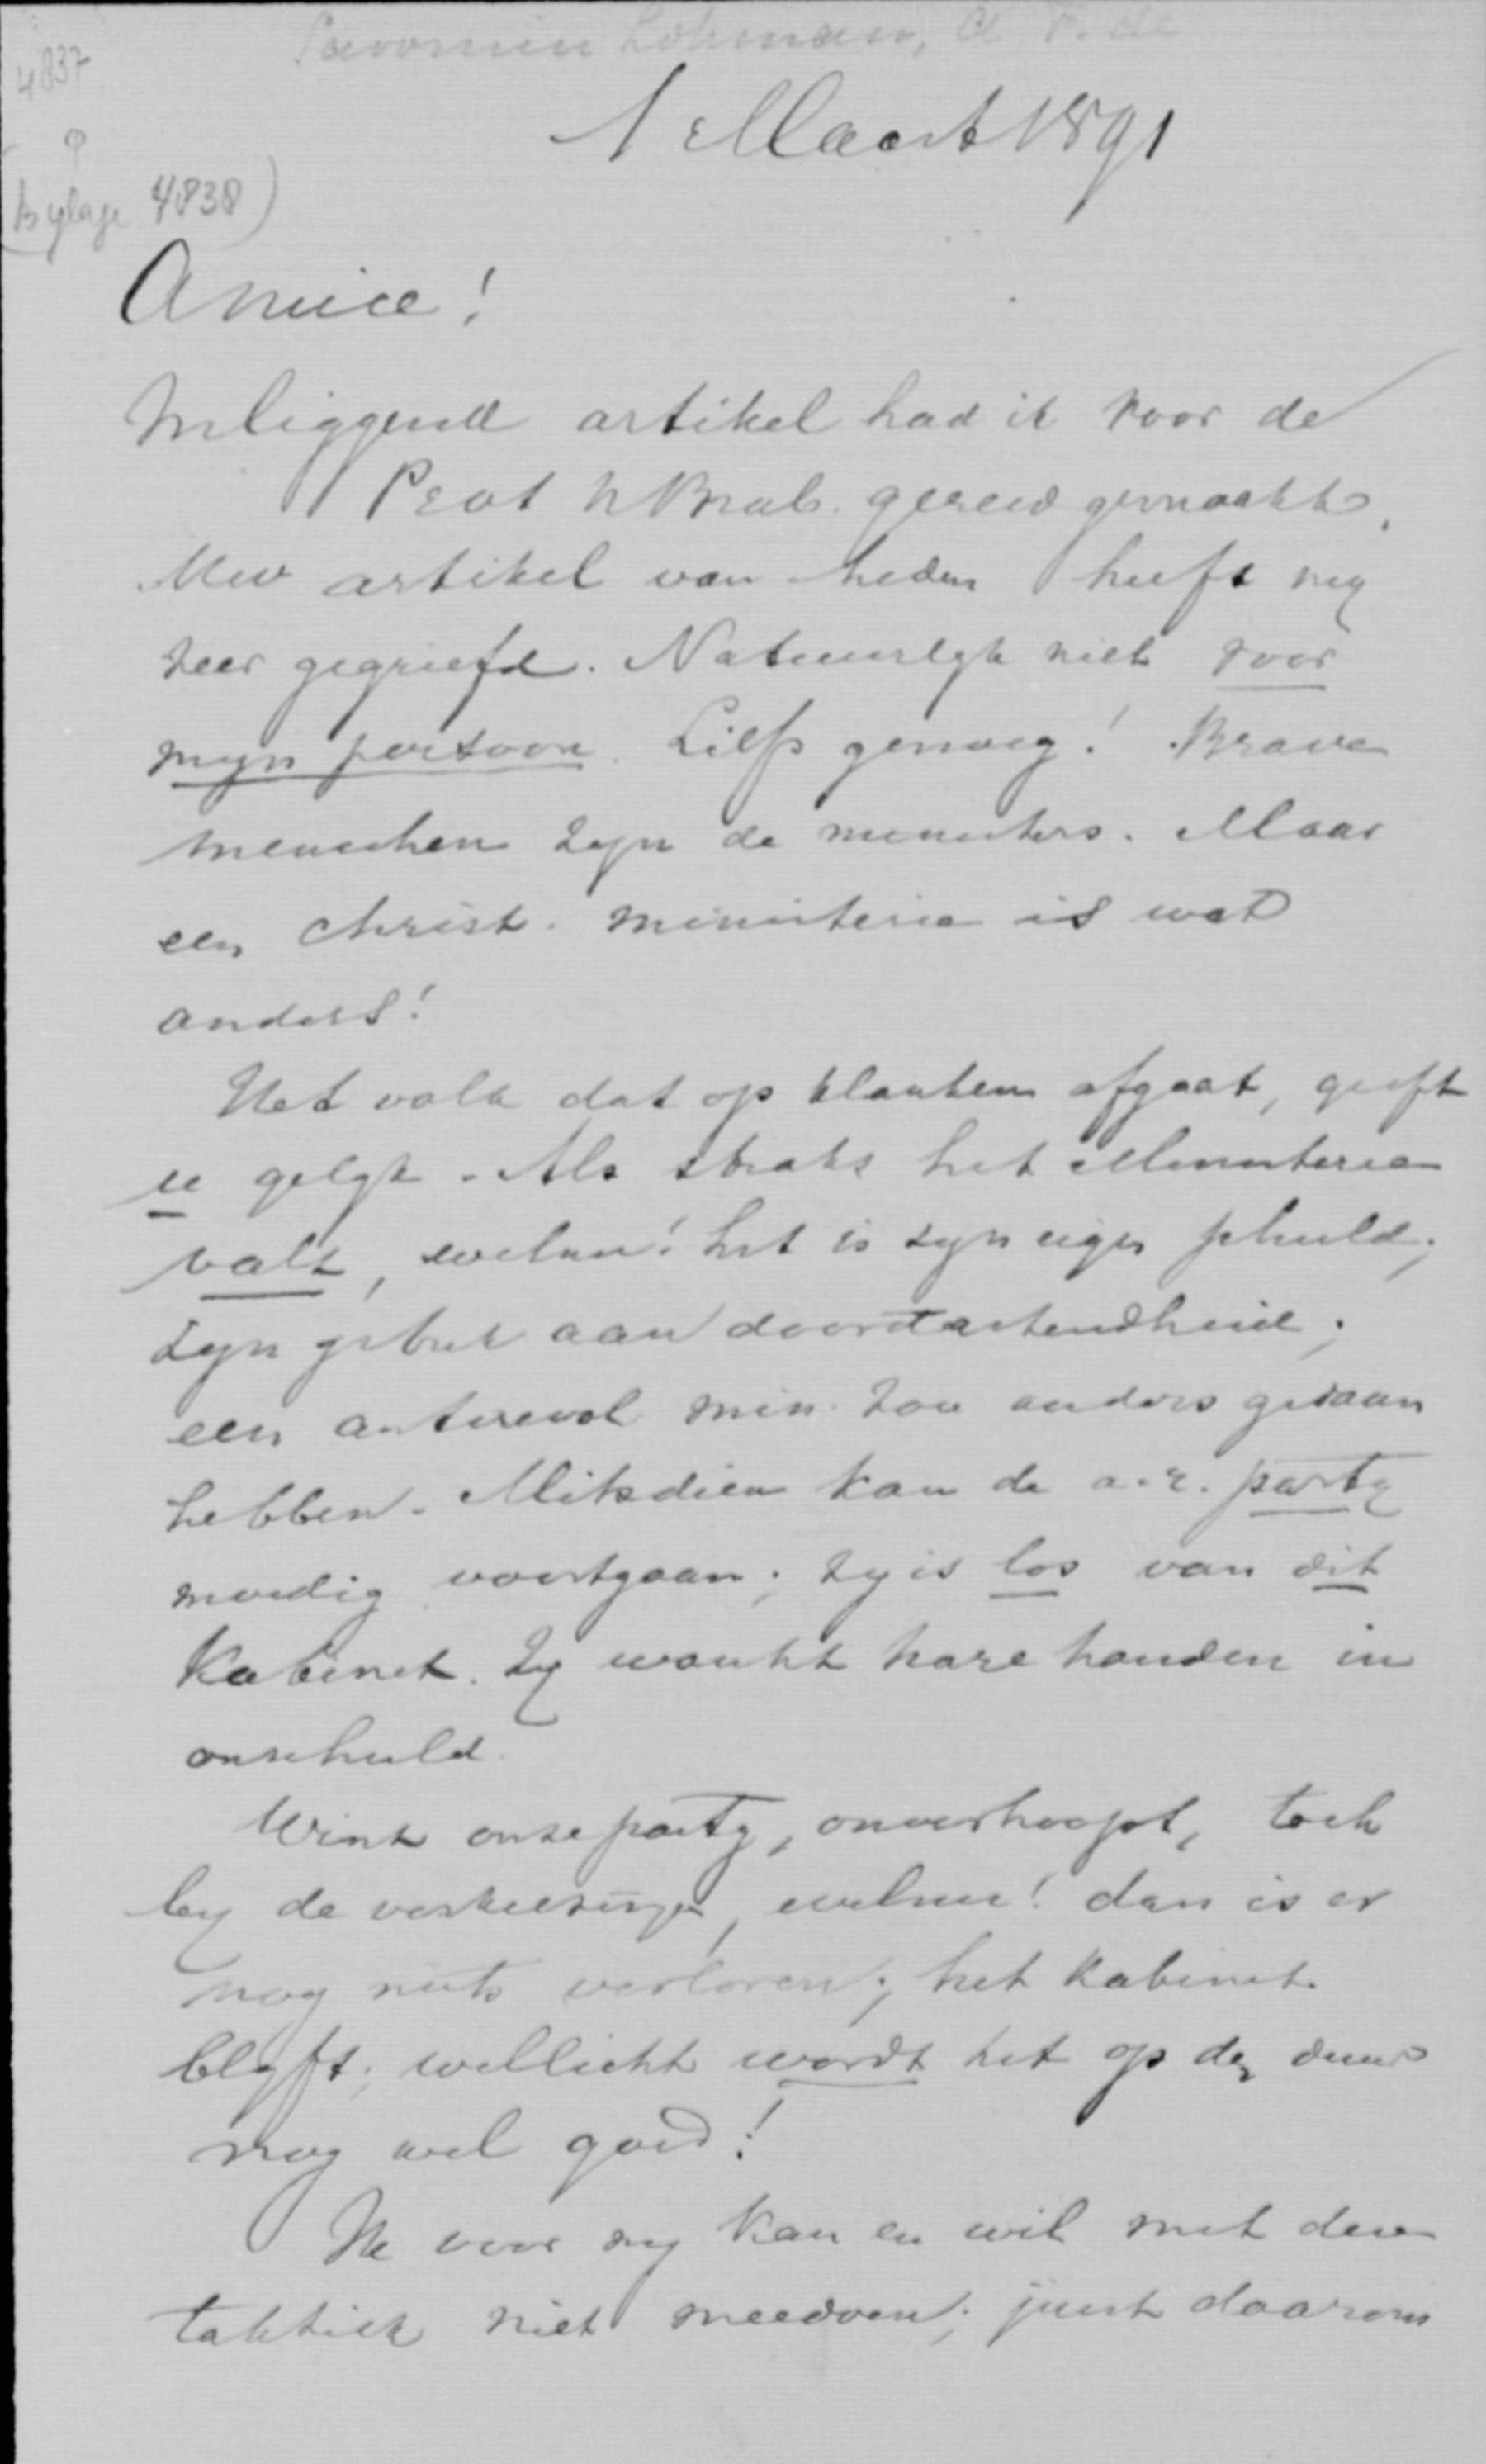 Savornin Lohman, A. F. de
4837
(Bylage 4838)
1 Maart 1891
Amice!
Inliggend artikel had ik voor de
Prot N Brab. gereed gemaakt.
Uw artikel van heden heeft my
zeer gegriefd. Natuurlyk niet voor
myn persoon. Liefs genoeg! Brave
menschen zyn de ministers. Maar
een Christ. ministerie is wat
anders!
Het volk dat op klanken afgaat, geeft
u gelyk. Als straks het Ministerie
valt, welnu! het is zyn eigen schuld;
zyn gebrek aan doortastendheid;
een antirevol min. zou anders gedaan
hebben. Mitsdien kan de a.r. party
moedig voortgaan; zy is los van dit
Kabinet. Zy wascht hare handen in
onschuld.
Wint onze party, onverhoopt, toch
by de verkiezingen, welnu! dan is er
nog niets verloren; het Kabinet
blyft; wellicht wordt het op den duur
nog wel goed!
Ik voor my kan en wil met deze
taktiek niet meedoen; juist daarom